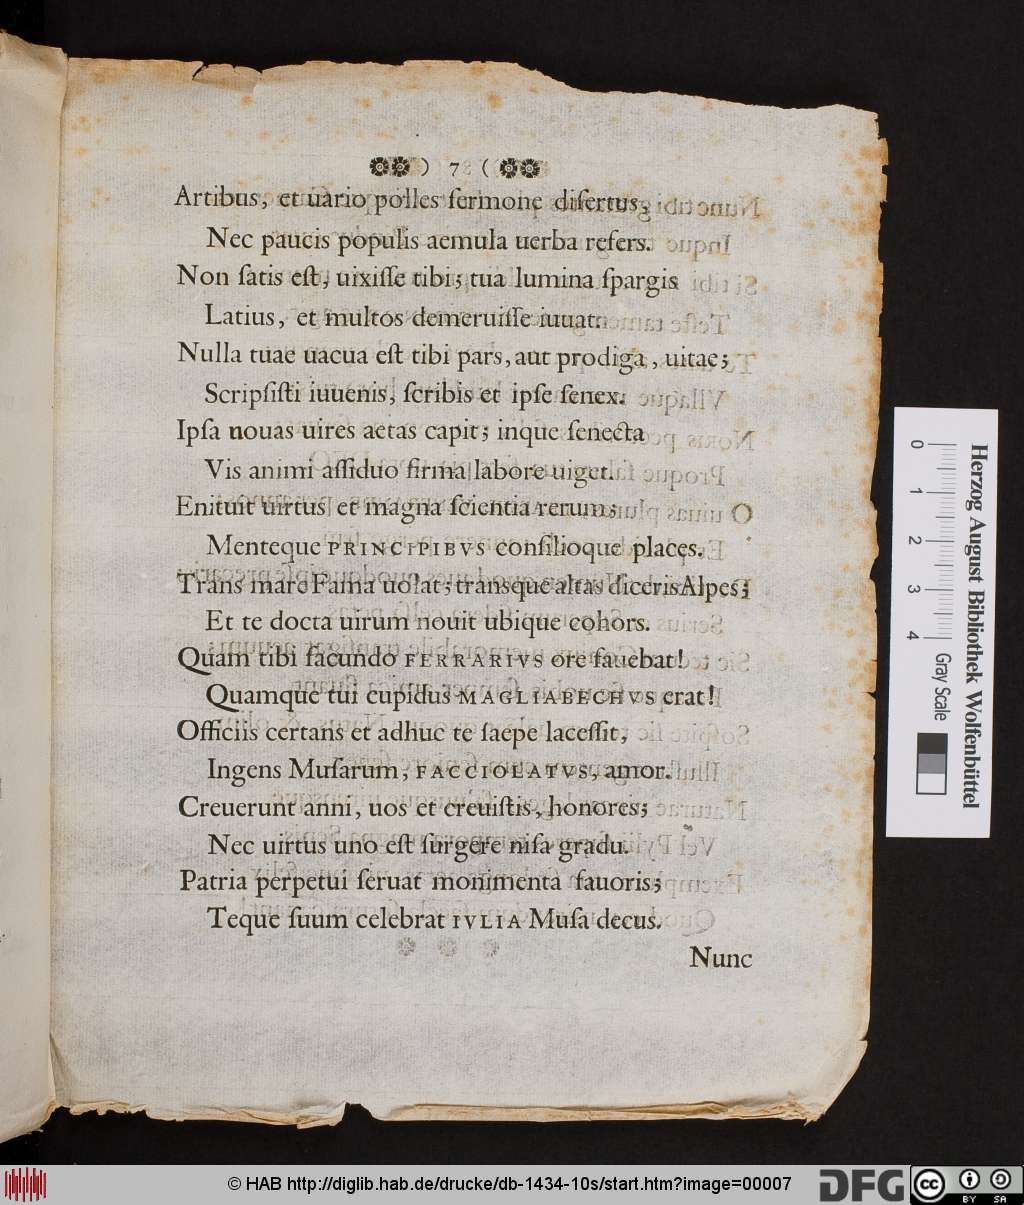 ) 7 (
Artibus, et uario polles ſermone diſertus,
Nec paucis populis aemula uerba refers.
Non ſatis eſt, uixiſſe tibi; tua lumina ſpargis
Latius, et multos demeruiſſe iuuat.
Nulla tuae uacua eſt tibi pars, aut prodiga, uitae;
Scripſiſti iuuenis, ſcribis et ipſe ſenex.
Ipſa nouas uires aetas capit; inque ſenecta
Vis animi aſſiduo firma labore uiget.
Enituit uirtus et magna ſcientia rerum;
Menteque PRINCIPIBVS conſilioque places.
Trans mare Fama uolat; transque altas diceris Alpes;
Et te docta uirum nouit ubique cohors.
Quam tibi facundo FERRARIVS ore fauebat!
Quamque tui cupidus MAGLIABECHVS erat!
Officiis certans et adhuc te ſaepe laceſſit,
Ingens Muſarum, FACCIOLATVS, amor.
Creuerunt anni, uos et creuiſtis, honores;
Nec uirtus uno eſt ſurgere niſa gradu.
Patria perpetui ſeruat monimenta fauoris;
Teque ſuum celebrat IVLIA Muſa decus.
Nunc
0 1 2 3 4
Gray Scale
Herzog August Bibliothek Wolfenbüttel
© HAB http://diglib.hab.de/drucke/db-1434-10s/start.htm?image=00007
DFG
cc BY SA